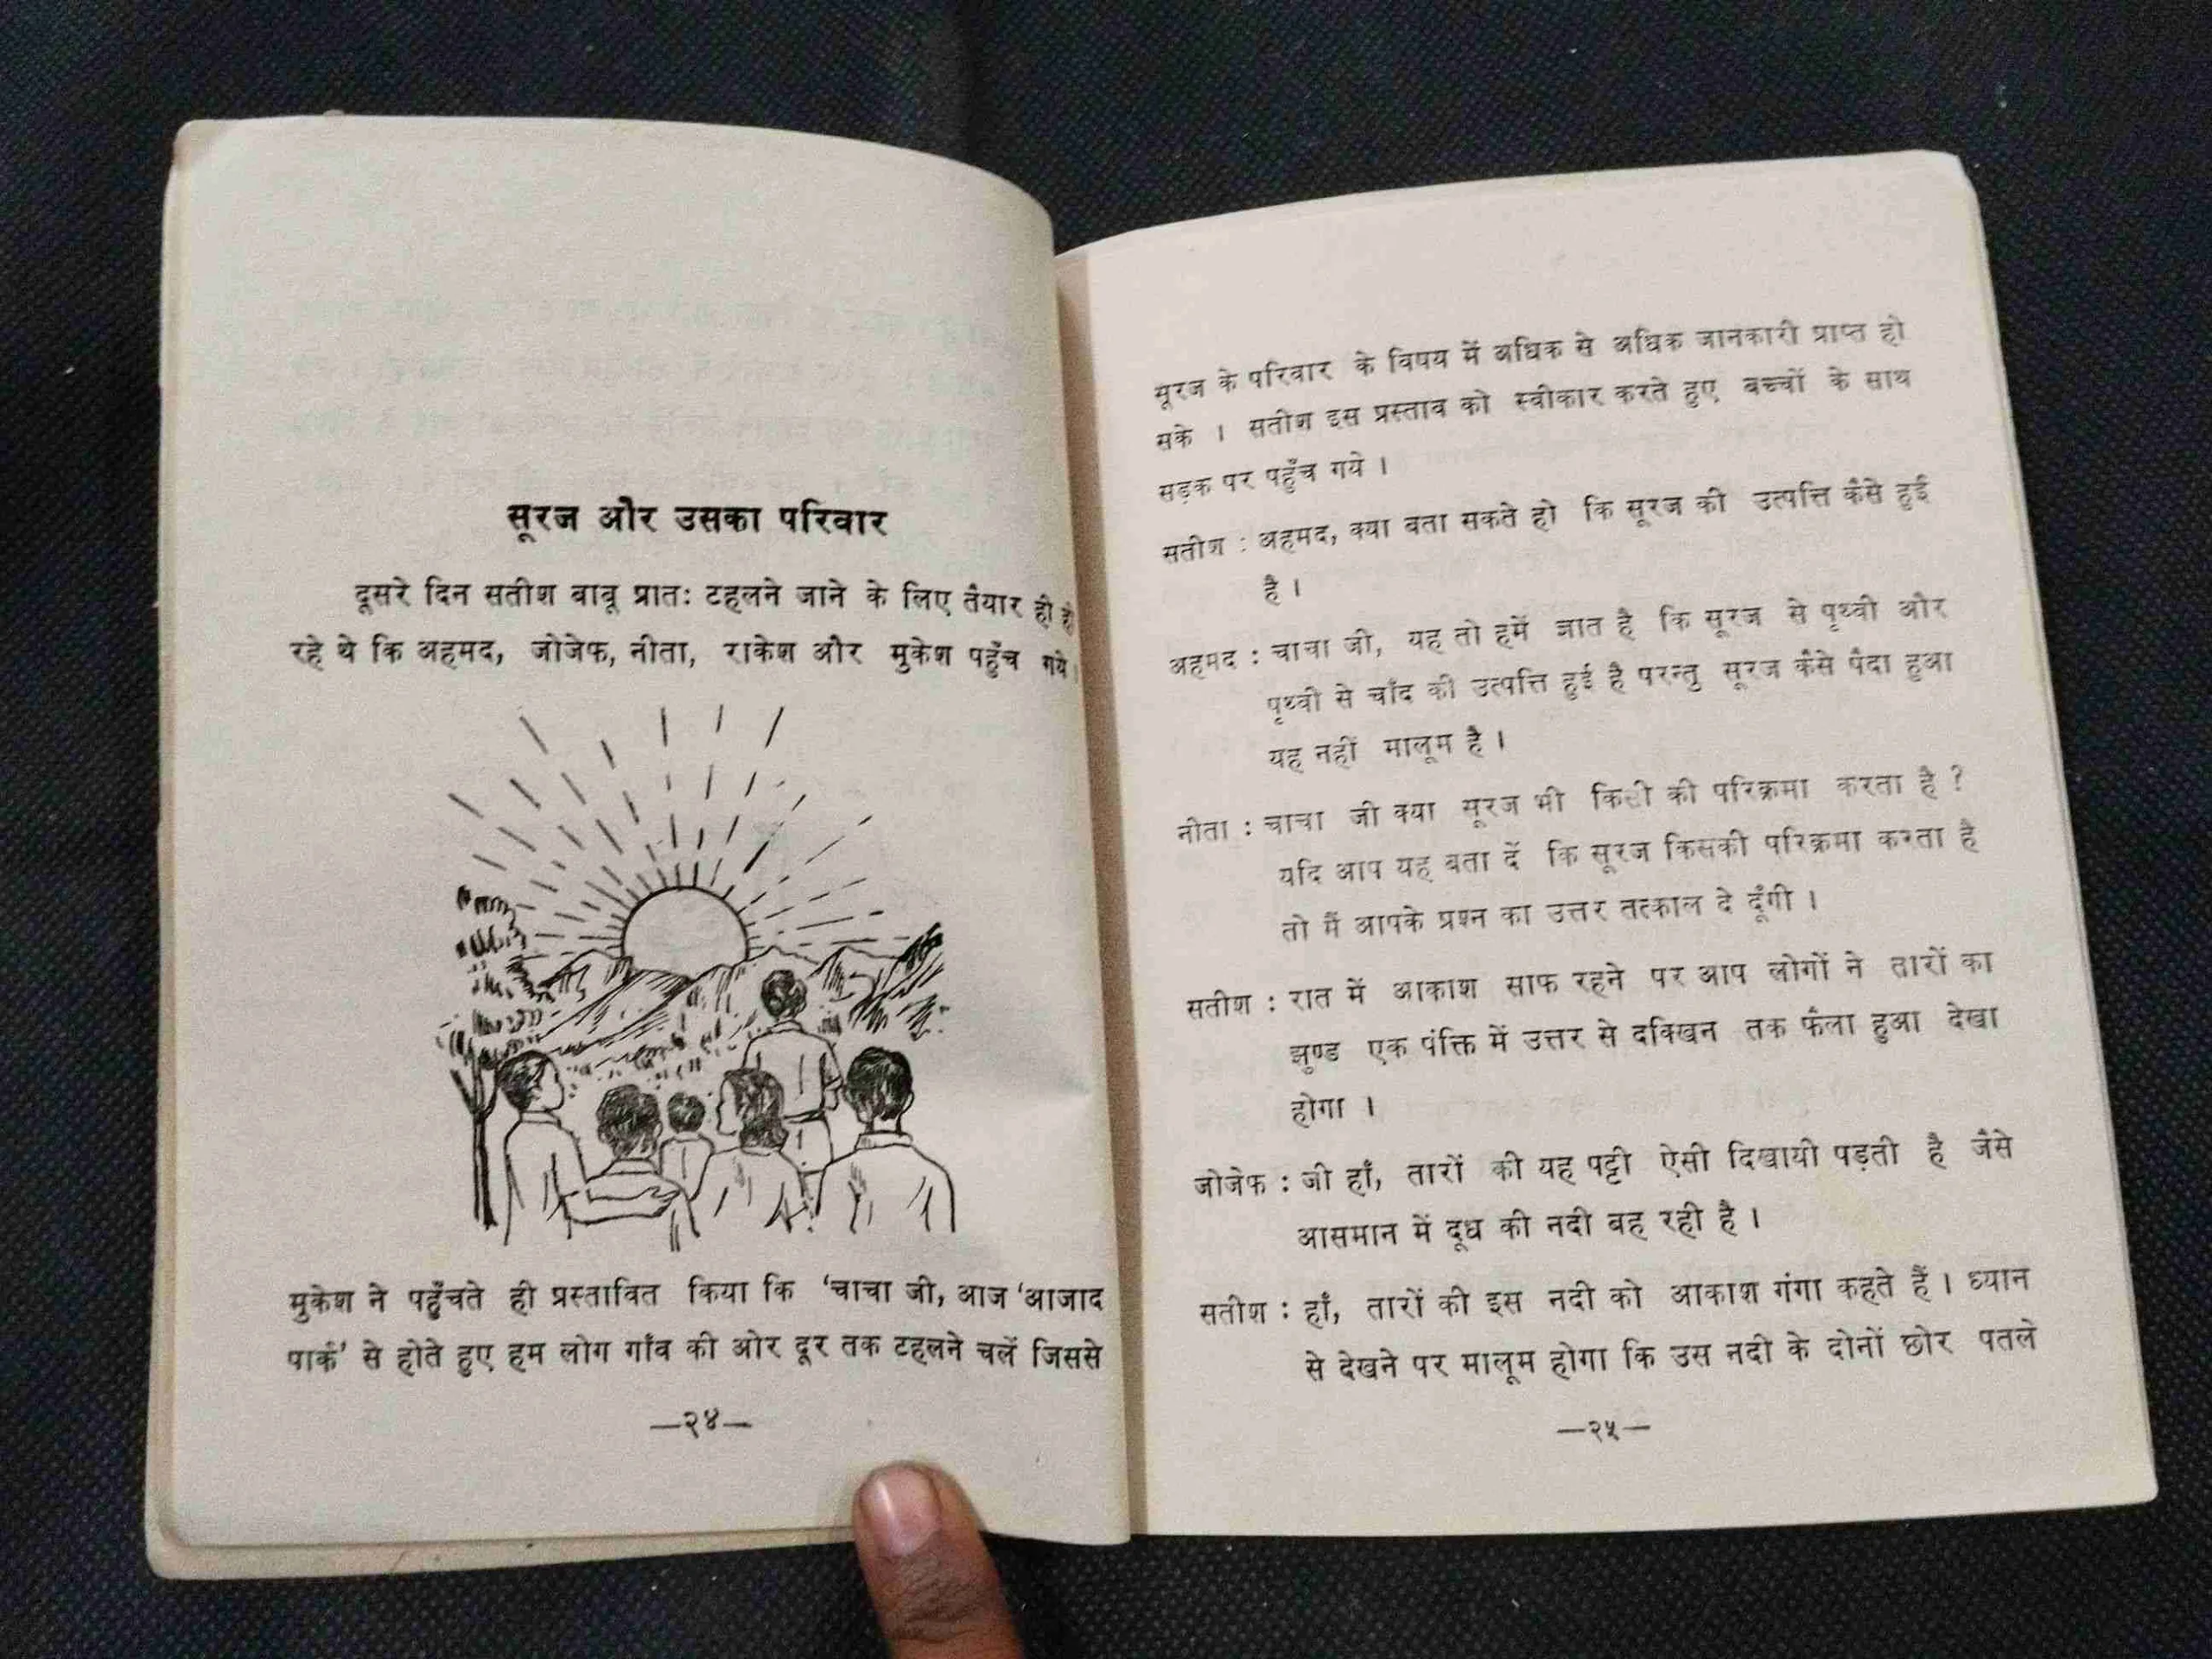 सूरज और उसका परिवार
दूसरे दिन सतीश बाबू प्रातः टहलने जाने के लिए तैयार ही हो
रहे थे कि अहमद, जोजेफ, नीता, राकेश और मुकेश पहुँच गये।
मुकेश ने पहुँचते ही प्रस्तावित किया कि 'चाचा जी, आज 'आजाद
पार्क' से होते हुए हम लोग गाँव की ओर दूर तक टहलने चलें जिससे
—२४—
सूरज के परिवार के विषय में अधिक से अधिक जानकारी प्राप्त हो
सके । सतीश इस प्रस्ताव को स्वीकार करते हुए बच्चों के साथ
सड़क पर पहुँच गये ।
सतीश : अहमद, क्या बता सकते हो कि सूरज की उत्पत्ति कैसे हुई
है ।
अहमद : चाचा जी, यह तो हमें ज्ञात है कि सूरज से पृथ्वी और
पृथ्वी से चाँद की उत्पत्ति हुई है परन्तु सूरज कैसे पैदा हुआ
यह नहीं मालूम है ।
नीता : चाचा जी क्या सूरज भी किसी की परिक्रमा करता है ?
यदि आप यह बता दें कि सूरज किसकी परिक्रमा करता है
तो मैं आपके प्रश्न का उत्तर तत्काल दे दूँगी ।
सतीश : रात में आकाश साफ रहने पर आप लोगों ने तारों का
झुण्ड एक पंक्ति में उत्तर से दक्खिन तक फैला हुआ देखा
होगा ।
जोजेफ : जी हाँ, तारों की यह पट्टी ऐसी दिखायी पड़ती है जैसे
आसमान में दूध की नदी बह रही है ।
सतीश : हाँ, तारों की इस नदी को आकाश गंगा कहते हैं । ध्यान
से देखने पर मालूम होगा कि उस नदी के दोनों छोर पतले
—२५—